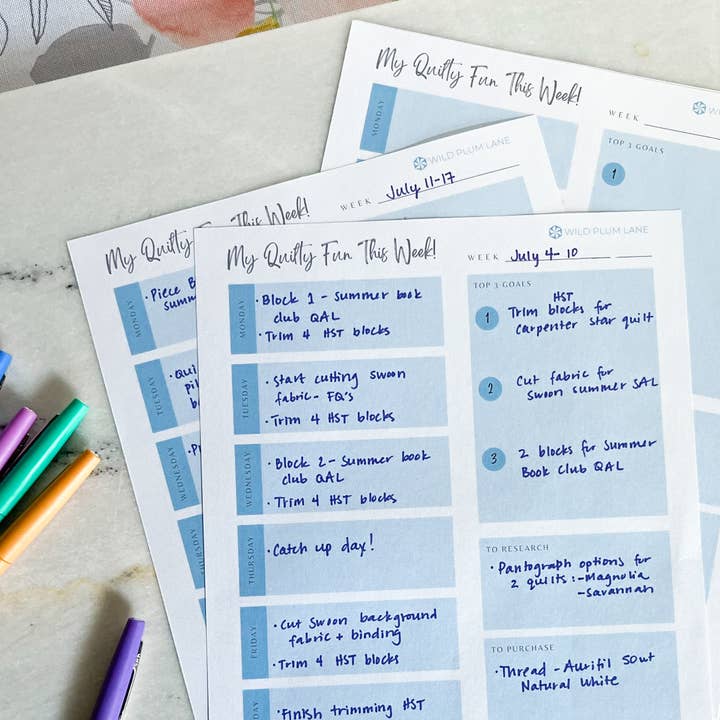 My Quilty Fun This Week!
WEEK
MONDAY
TOP 3 GOALS
1
WILD PLUM LANE
My Quilty Fun This Week!
WEEK July 11-17
MONDAY
• Piece
summ
TUESDAY
WEDNESDAY
THURSDAY
WILD PLUM LANE
My Quilty Fun This Week!
WEEK July 4-10
MONDAY
• Block 1 - Summer book
club QAL
• Trim 4 HST blocks
TUESDAY
• Start cutting Swoon
fabric - FQ's
• Trim 4 HST blocks
WEDNESDAY
• Block 2 - Summer book
club QAL
• Trim 4 HST blocks
THURSDAY
• Catch up day!
FRIDAY
• Cut Swoon background
fabric + binding
• Trim 4 HST blocks
• Finish trimming HST
TOP 3 GOALS
1
HST
Trim blocks for
carpenter star quilt
2
Cut fabric for
Swoon summer SAL
3
2 blocks for Summer
Book Club QAL
TO RESEARCH
• Pantograph options for
2 quilts: - Magnolia
- Savannah
TO PURCHASE
• Thread - Aurifil 50wt
Natural White